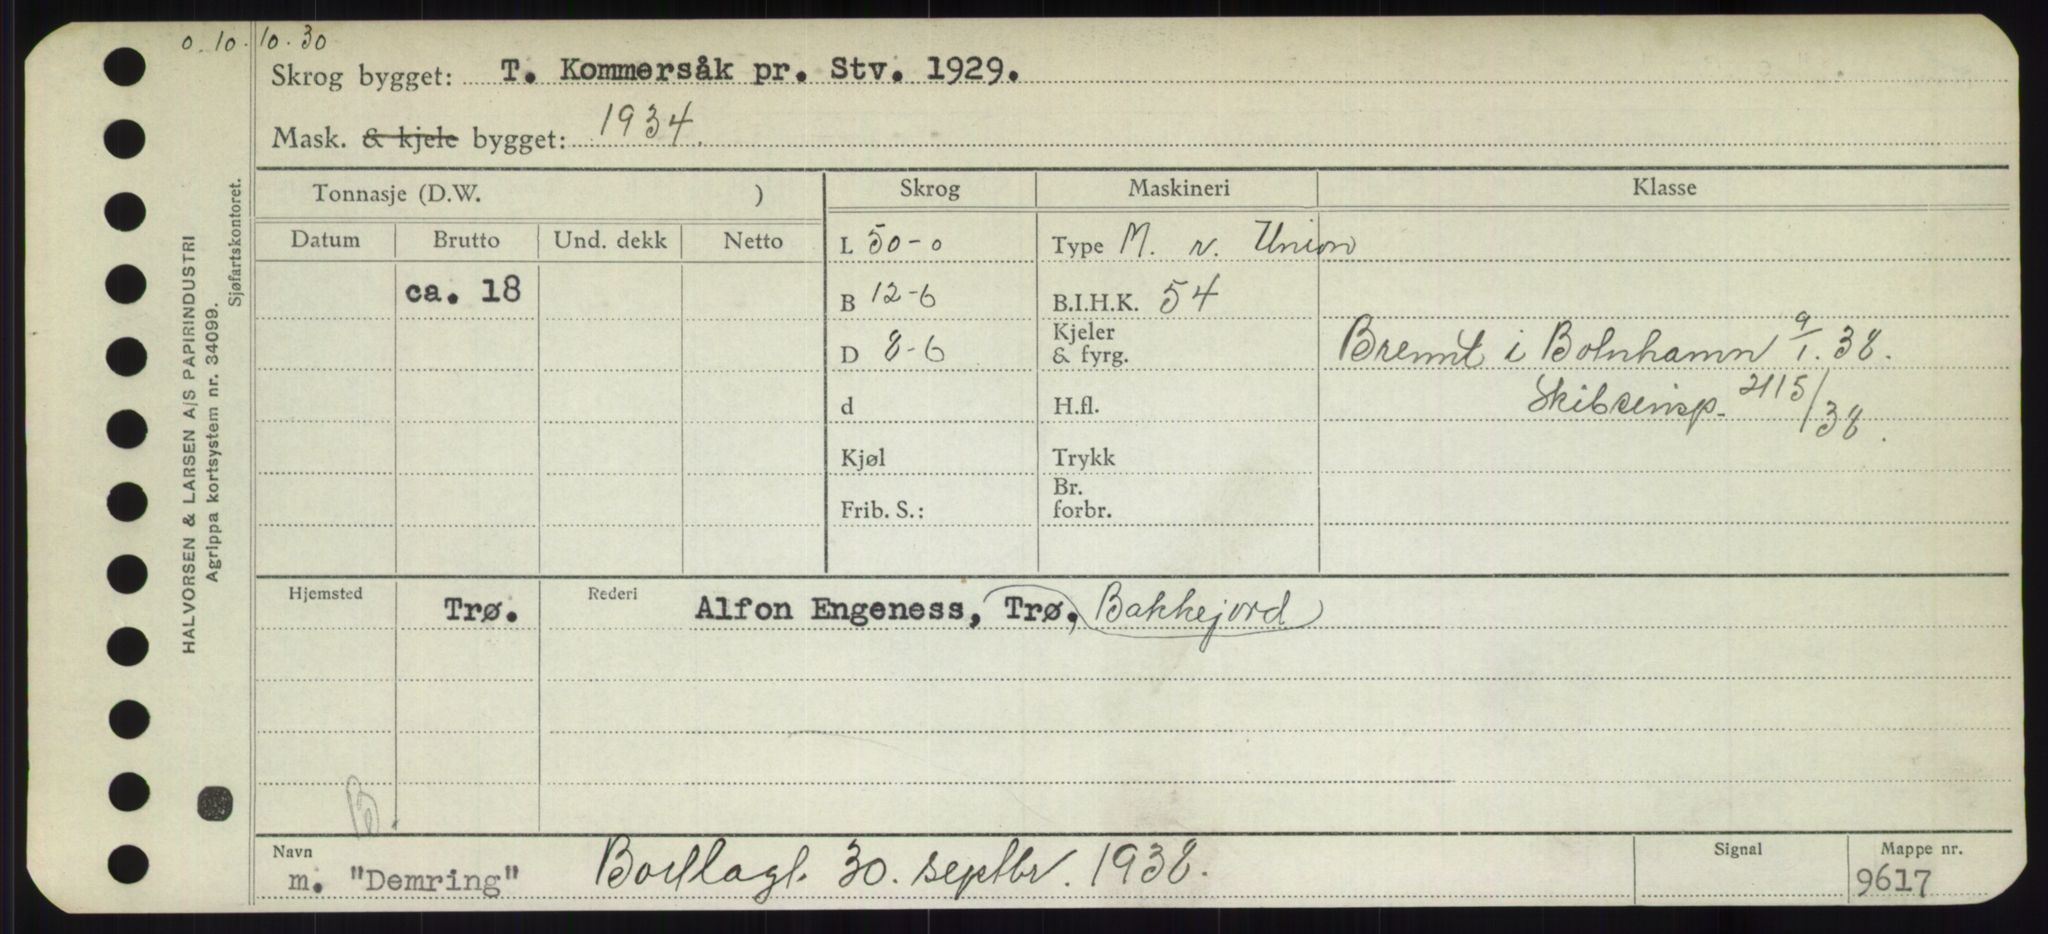 o. 10. 10. 30
Skrog bygget: T. Kommersåk pr. Stv. 1929.
Mask. & kjele bygget: 1934.
Tonnasje (D.W. )
Skrog
Maskineri
Klasse
Datum
Brutto
Und. dekk
Netto
L 50-0
Type M. v. Union
ca. 18
B 12-6
B.I.H.K. 54
D 8-6
Kjeler
& fyrg.
Brennt i Bolnhamn 9/1. 38.
d
H.fl.
Skibsinsp. 2115/38.
Kjøl
Trykk
Frib. S.:
Br.
forbr.
Hjemsted
Trø.
Rederi
Alfon Engeness, Trø, Bakkejord
B.
Navn
m. "Demring"
Bortlagt. 30. septbr. 1938.
Signal
Mappe nr.
9617
HALVORSEN & LARSEN A/S PAPIRINDUSTRI
Agrippa kortsystem nr. 34099.
Sjøfartskontoret.